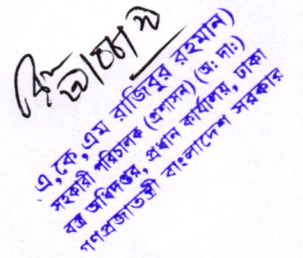 এ,কে,এম রাজিবুর রহমান
সহকারী পরিচালক (প্রশাসন) (অ: দা:)
বস্ত্র অধিদপ্তর, প্রধান কার্যালয়, ঢাকা
গণপ্রজাতন্ত্রী বাংলাদেশ সরকার